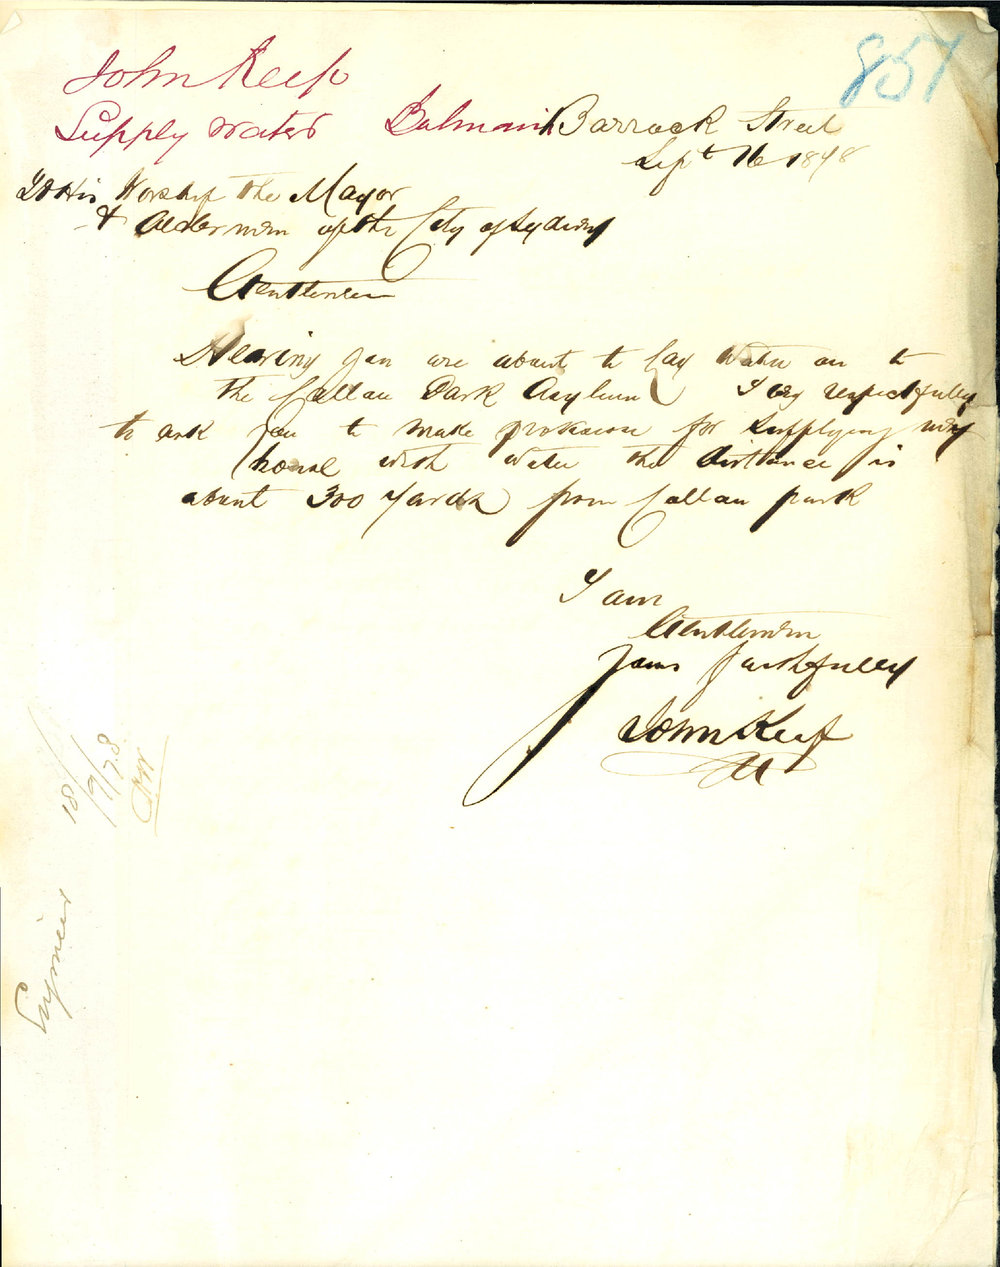 857
John Keep
Supply Water Balmain Barrack Street
Sept 16 1848
To His Worship the Mayor
& Aldermen of the City of Sydney
Gentlemen
Hearing you are about to lay Water on to
the Callan Park Asylum I beg respectfully
to ask you to make provision for supplying my
house with water the distance is
about 300 Yards from Callan park
I am
Gentlemen
Yours faithfully
John Keep
18/9/78
Engineer